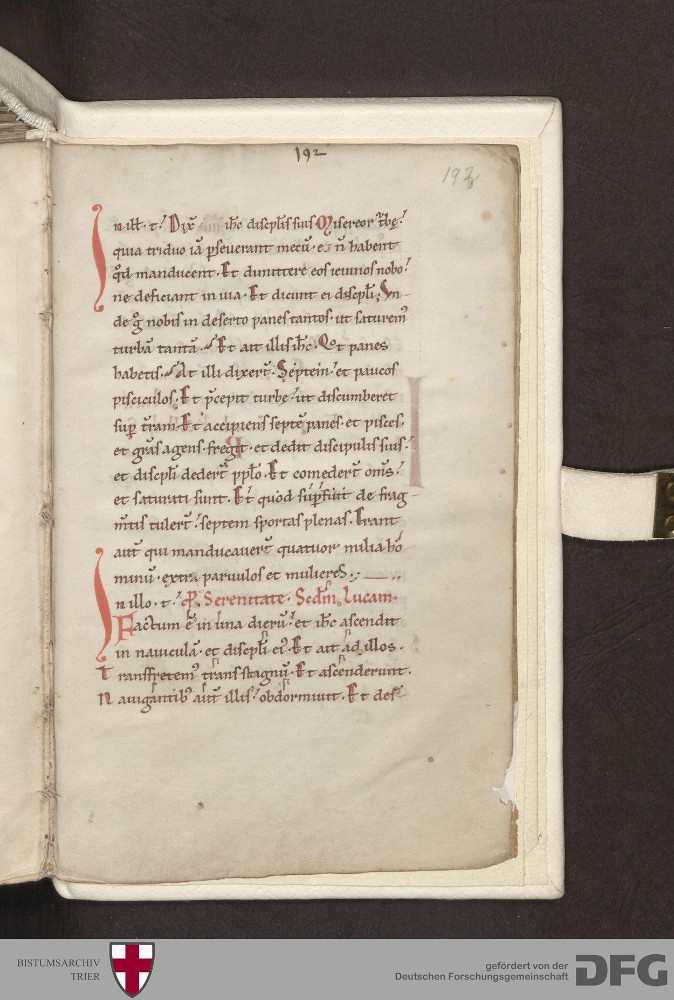 192
193
In ill. t. Dix̄ ih̄c discipl̄is suis Misereor turbe.
quia triduo iā p̄seuerant mecū. & n̄ habent
qd̄ manducent. Et dimittere eos ieiunos nolo.
ne deficiant in uia. Et dicunt ei discipl̄i. Vn-
de g̊ nobis in deserto panes tantos. ut saturem᷒
turbā tantā. Et ait illis ih̄c. Qot panes
habetis. At illi dixer̄t. Septem. et paucos
pisciculos. Et p̄cepit turbe. ut discumberet
sup̄ t̄ram. Et accipiens septē panes. et pisces.
et gr̄as agens. fregit. et dedit discipulis suis.
et discipl̄i deder̄t pplo. Et comeder̄t om̄s.
et saturati sunt. Et quod sup̄fuit de frag-
m̄tis tuler̄t. septem sportas plenas. Erant
aut̄ qui manducauer̄t quatuor milia ho
minū. extra paruulos et mulieres.
In illo. t. P Serenitate. Scdm Lucam.
Factum ē in una dierū. et ih̄c ascendit
in nauiculā. et discipl̄i ei᷒. Et ait ad illos.
Transfretem᷒ trans stagnū. Et ascenderunt.
Nauigantib᷒ aut̄ illis. obdormiuit. Et des-
BISTUMSARCHIV
TRIER
gefördert von der
Deutschen Forschungsgemeinschaft
DFG